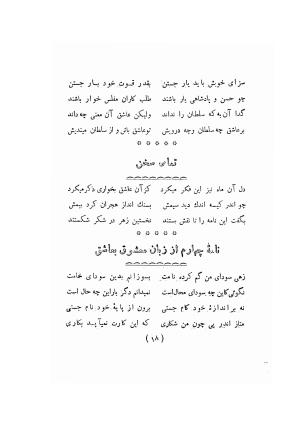 سزای خویش باید یار جستن بقدر قوت خود بار جستن
چو حسن و پادشاهی یار باشند طلب کاران مفلس خوار باشند
گدا آن به که سلطان را نداند ولیکن عاشق آن معنی چه داند
برعاشق چه سلطان وچه درویش توعاشق باش و از سلطان میندیش
تمامی سخن
دل آن ماه نیز این فکر میکرد کز آن عاشق بخواری ذکرمیکرد
چو اندر کیسه اندك دید سیمش بسنك انداز هجران کرد بیمش
بگفت این نامه را تا نقش بستند نخستین زهر در شکر شکستند
نامهٔ چهارم از زبان معشوق بعاشق
زهی سودای من گم کرده نامت بسوزانم بدین سودای خامت
نگوئی کاین چه سودای محال است نمیدانم دگر باراین چه حال است
نه بر اندازهٔ خود کام جستی برون از پایهٔ خود نام جستی
متاز اندر پی چون من شکاری که این کارت نمیآید بکاری
(۱۸)